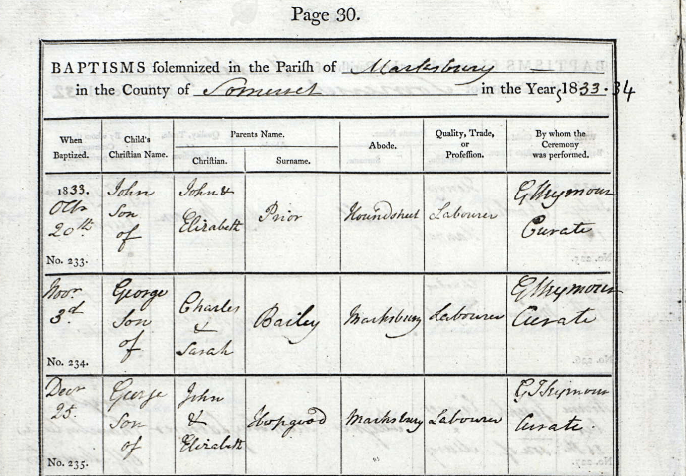 Page 30.
BAPTISMS solemnized in the Parish of Marksbury
in the County of Somerset in the Year 1833.34
When Baptized. Child's Christian Name. Parents Name. Abode. Quality, Trade, or Profession. By whom the Ceremony was performed.
Christian. Surname.
1833. John John &
Octr Son Elizabeth Prior Houndstreet Labourer G Seymour
20th of Curate
No. 233.
Novr George Charles G Seymour
3d Son & Bailey Marksbury Labourer Curate
of Sarah
No. 234.
Decr George John G T Seymour
25. Son & Hopgood Marksbury Labourer Curate
of Elizabeth
No. 235.